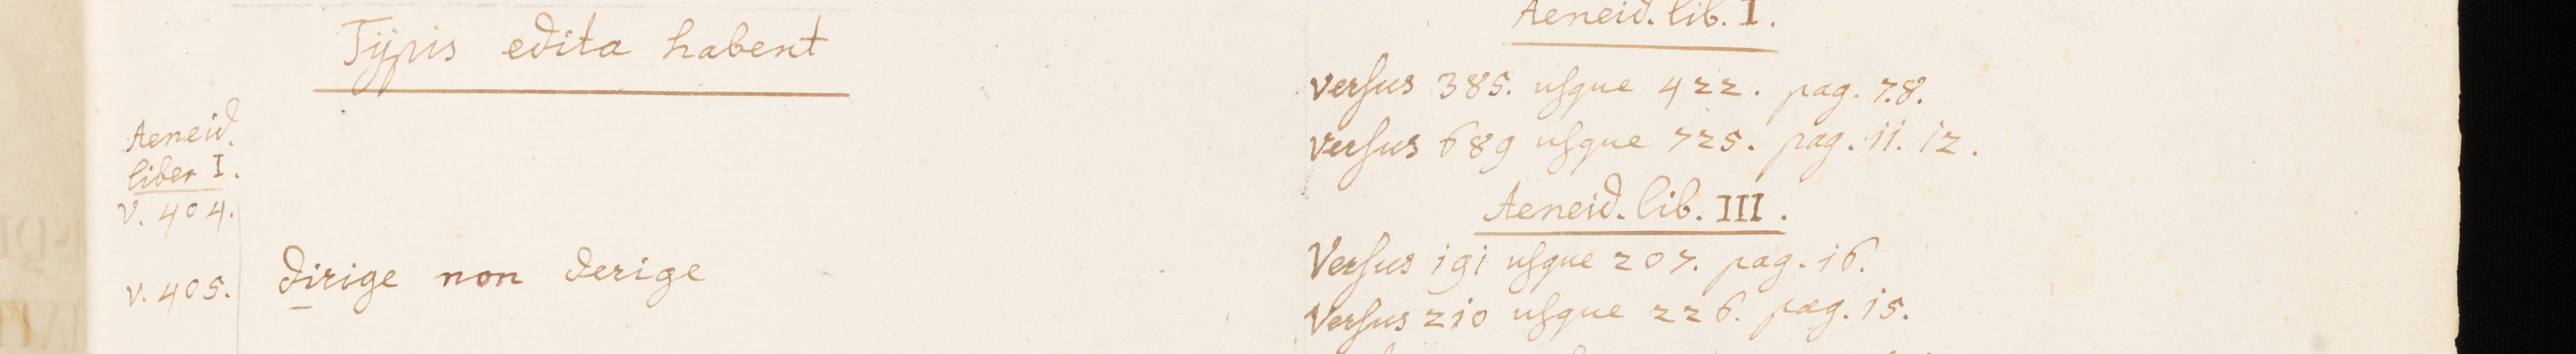 Typis edita habent
Aeneid.
liber I.
v. 404.
v. 405. dirige non derige
Aeneid. lib. I.
versus 385. usque 422. pag. 7.8.
versus 689 usque 725. pag. 11. 12.
Aeneid. lib. III.
Versus 191 usque 207. pag. 16.
Versus 210 usque 226. pag. 15.